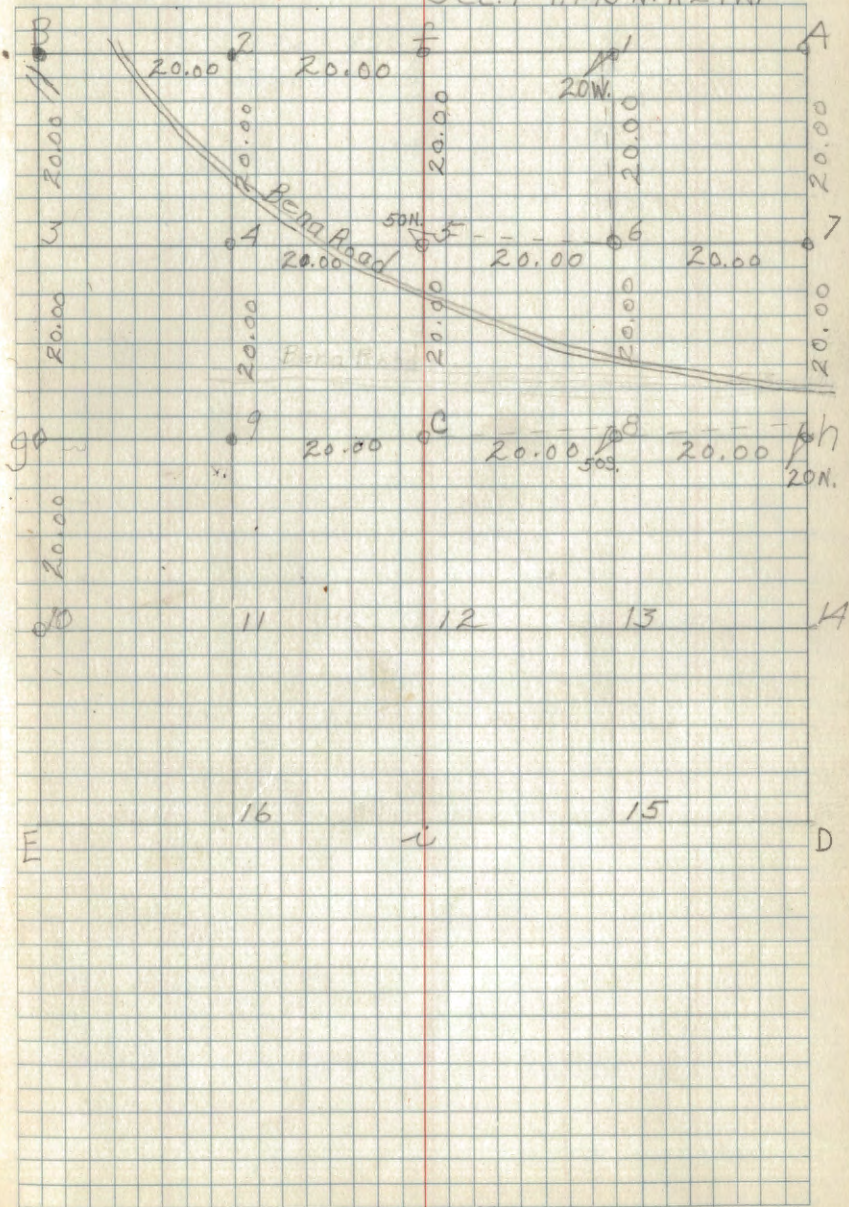 B 2 f 1 A
20.00 20.00 20W.
20.00 20.00 20.00 20.00 20.00
Bena Road
50N.
3 4 5 6 7
20.00 20.00 20.00
20.00 20.00 20.00 20.00 20.00
Bena Road
g 9 C 8 h
20.00 20.00 20.00
50S. 20N.
20.00
10 11 12 13 14
16 15
E i D